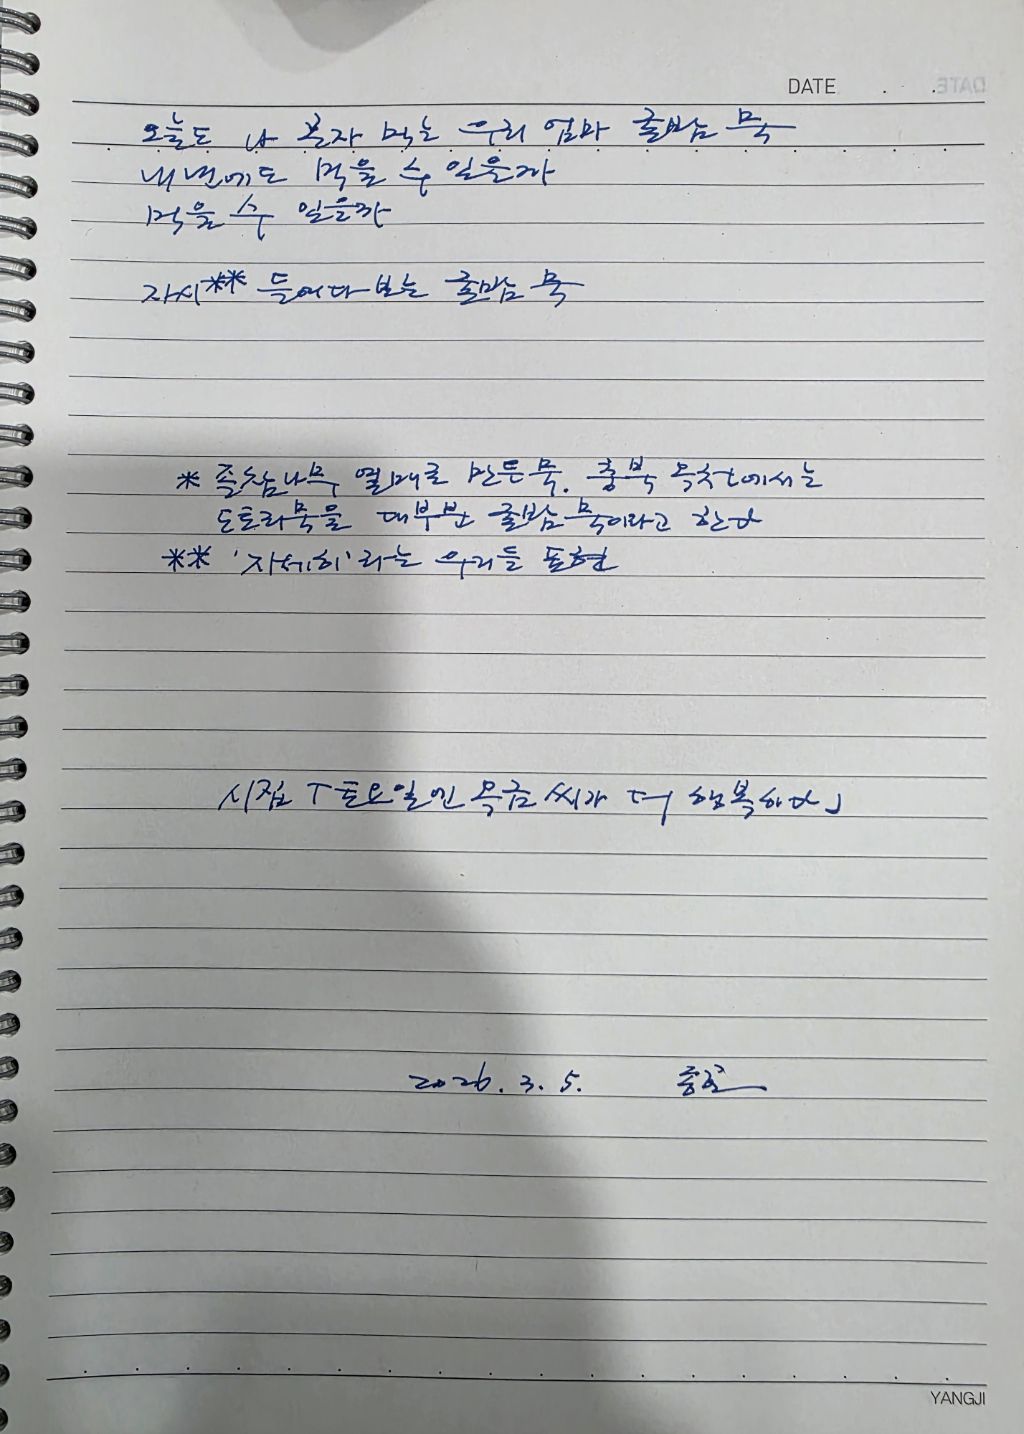 DATE . .
오늘도 나 혼자 먹는 우리 엄마 굴밤 묵
내년에도 먹을 수 있을까
먹을 수 있을까
자시** 들여다보는 굴밤 묵
* 졸참나무 열매로 만든 묵. 충북 옥천에서는
도토리묵을 대부분 굴밤 묵이라고 한다
** '자세히'라는 우리들 표현
시집 「토요일엔 목금 씨가 더 행복하다」
2026. 3. 5.
YANGJI